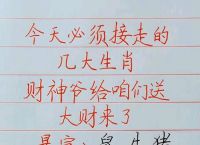 今天必须接走的
几大生肖
财神爷给咱们送
大财来了